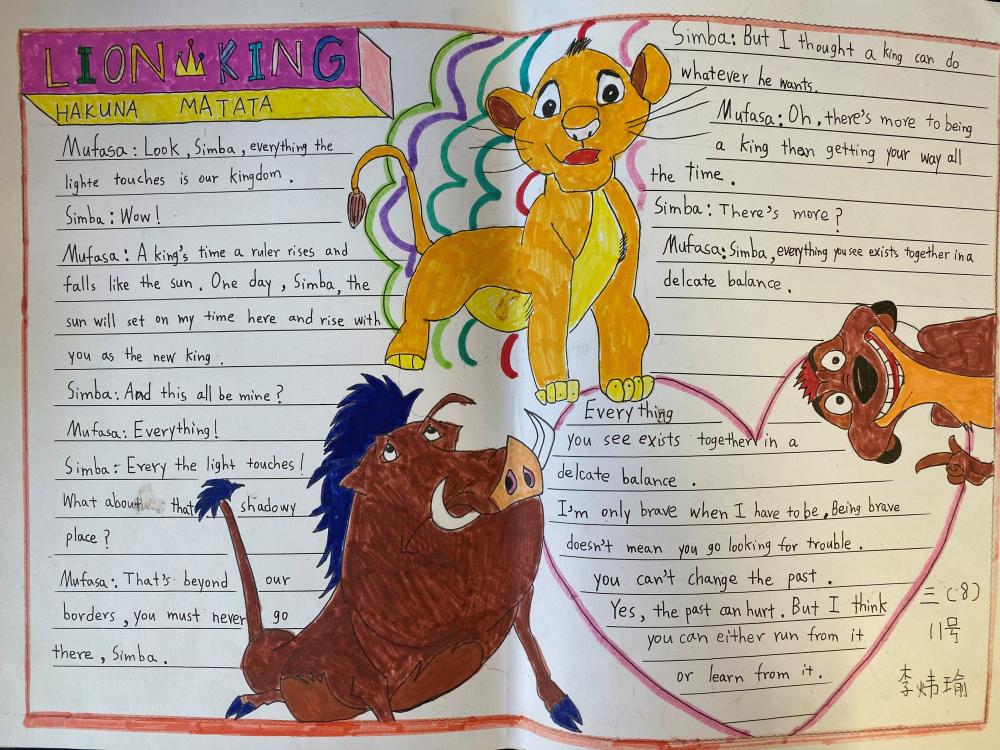 LION KING
HAKUNA MATATA
Mufasa: Look, Simba, everything the
lighte touches is our kingdom.
Simba: Wow!
Mufasa: A king's time a ruler rises and
falls like the sun. One day, Simba, the
sun will set on my time here and rise with
you as the new king.
Simba: And this all be mine?
Mufasa: Everything!
Simba: Every the light touches!
What about that shadowy
place?
Mufasa: That's beyond our
borders, you must never go
there, Simba.
Simba: But I thought a king can do
whatever he wants.
Mufasa: Oh, there's more to being
a king than getting your way all
the time.
Simba: There's more?
Mufasa: Simba, everything you see exists together in a
delcate balance.
Everything
you see exists together in a
delcate balance.
I'm only brave when I have to be, Being brave
doesn't mean you go looking for trouble.
you can't change the past.
Yes, the past can hurt. But I think
you can either run from it
or learn from it.
三(8)
11号
李炜瑜